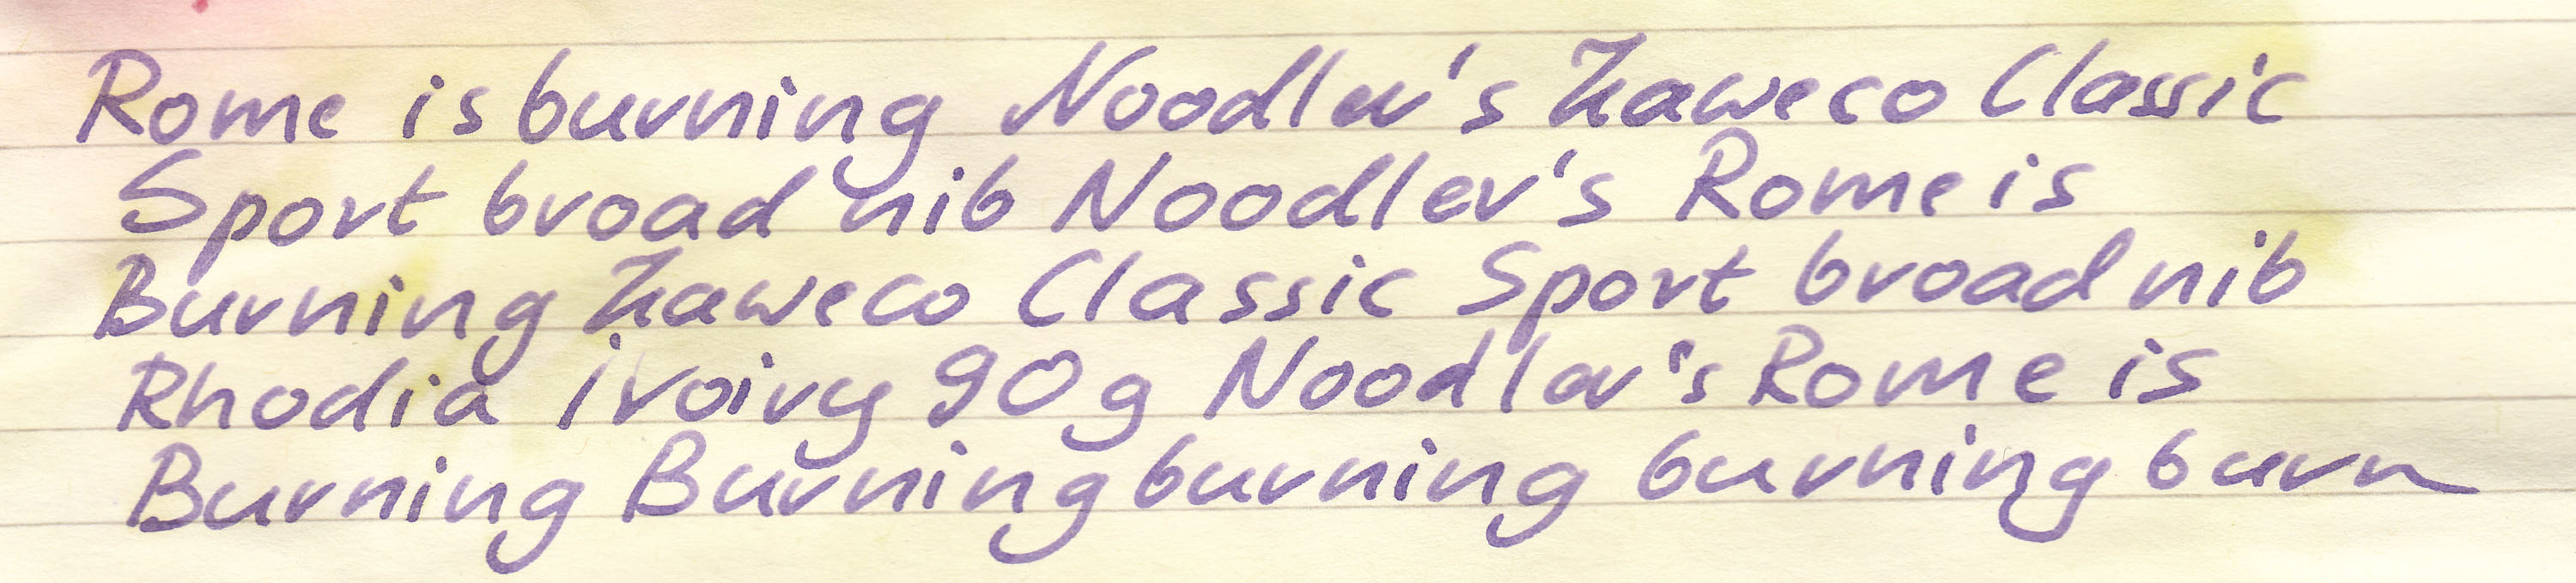 Rome is burning Noodler's Kaweco Classic
Sport broad nib Noodler's Rome is
Burning Kaweco Classic Sport broad nib
Rhodia ivoiry 90g Noodler's Rome is
Burning Burning burning burning burn